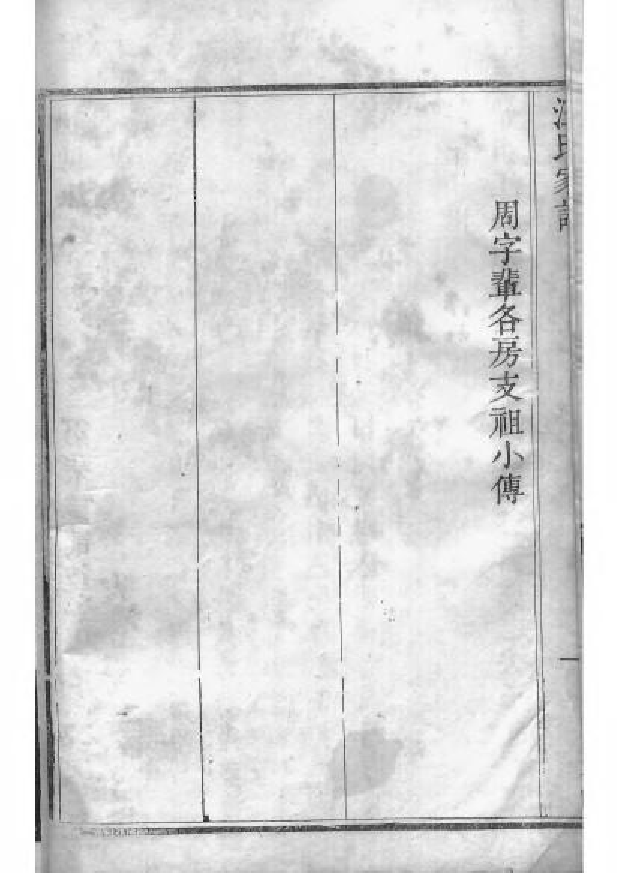 氏家譜
周字輩各房支祖小傳